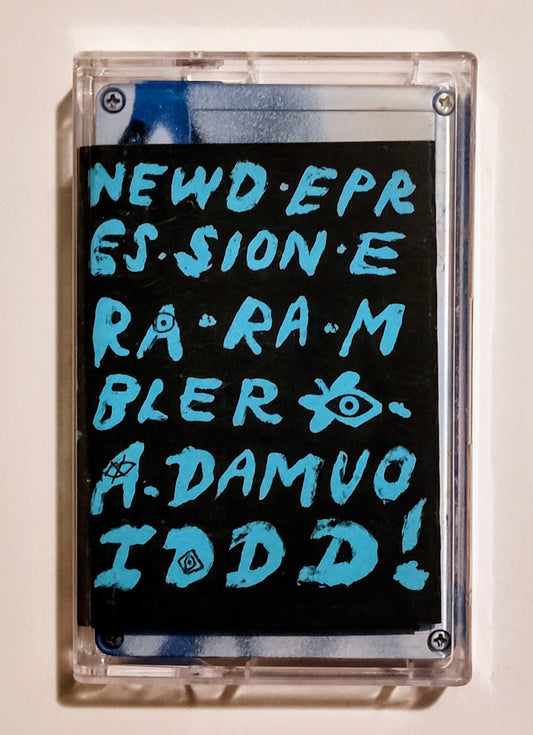 NEWD·EPR
ES·SION·E
RA·RA·M
BLER ·
A.DAMVO
IDDD!